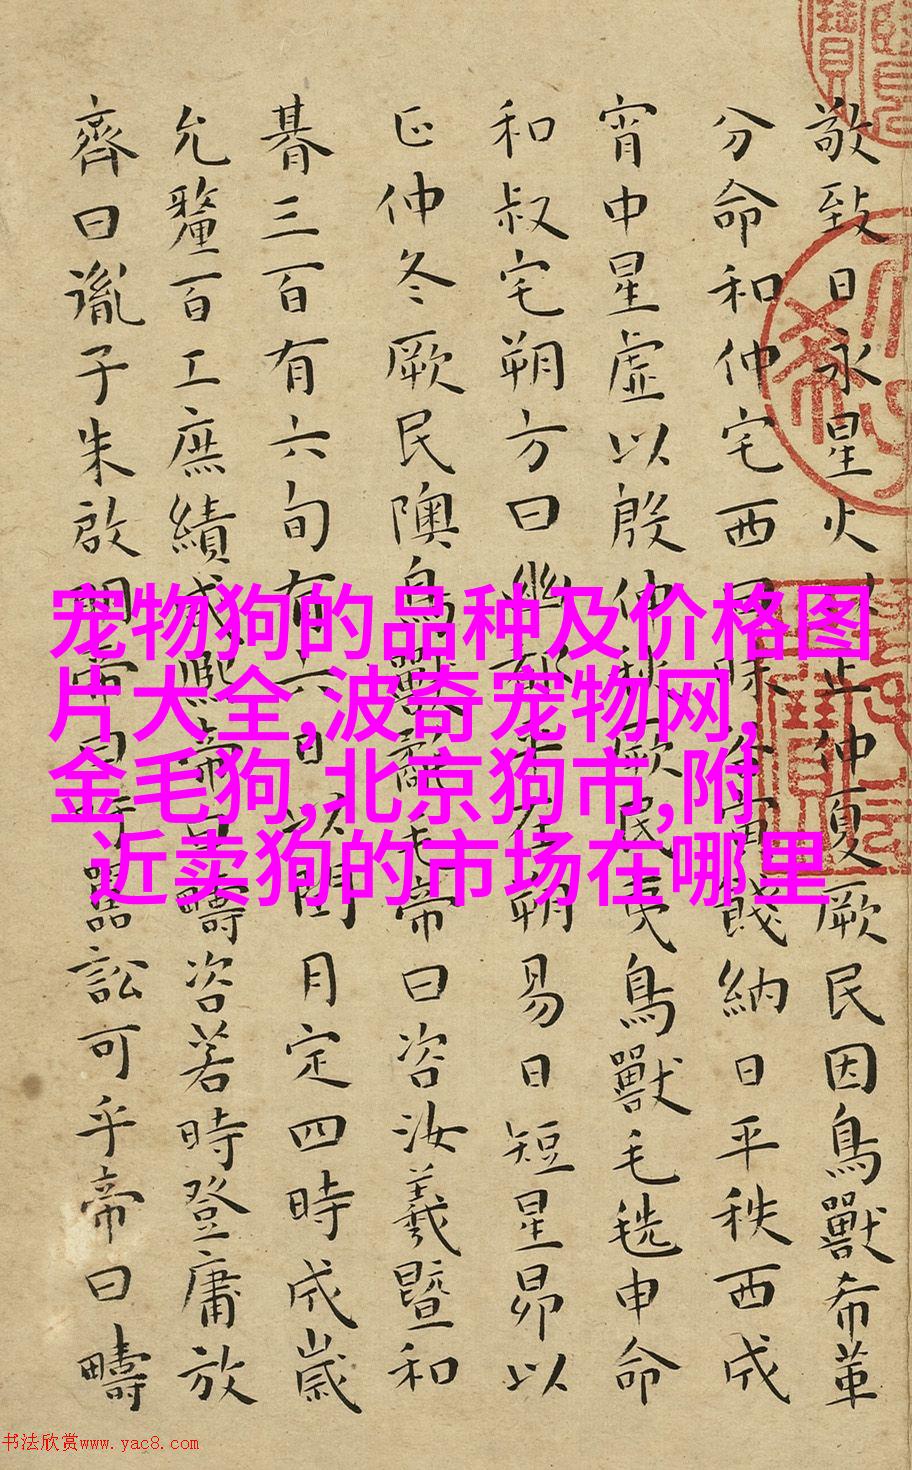 敬致日永星火以正仲夏厥民因鳥獸希革
分命和仲宅西曰昧谷寅餞納日平秩西成
宵中星虛以殷仲秋厥民夷鳥獸毛毨申命
和叔宅朔方曰幽都平在朔易日短星昴以
正仲冬厥民隩鳥獸氄毛帝曰咨汝羲暨和
朞三百有六旬有六日以閏月定四時成歲
允釐百工庶績咸熙帝曰疇咨若時登庸放
齊曰胤子朱啟明帝曰吁嚚訟可乎帝曰疇
宠物狗的品种及价格图
片大全,波奇宠物网,
金毛狗,北京狗市,附
近卖狗的市场在哪里
书法欣赏www.yac8.com